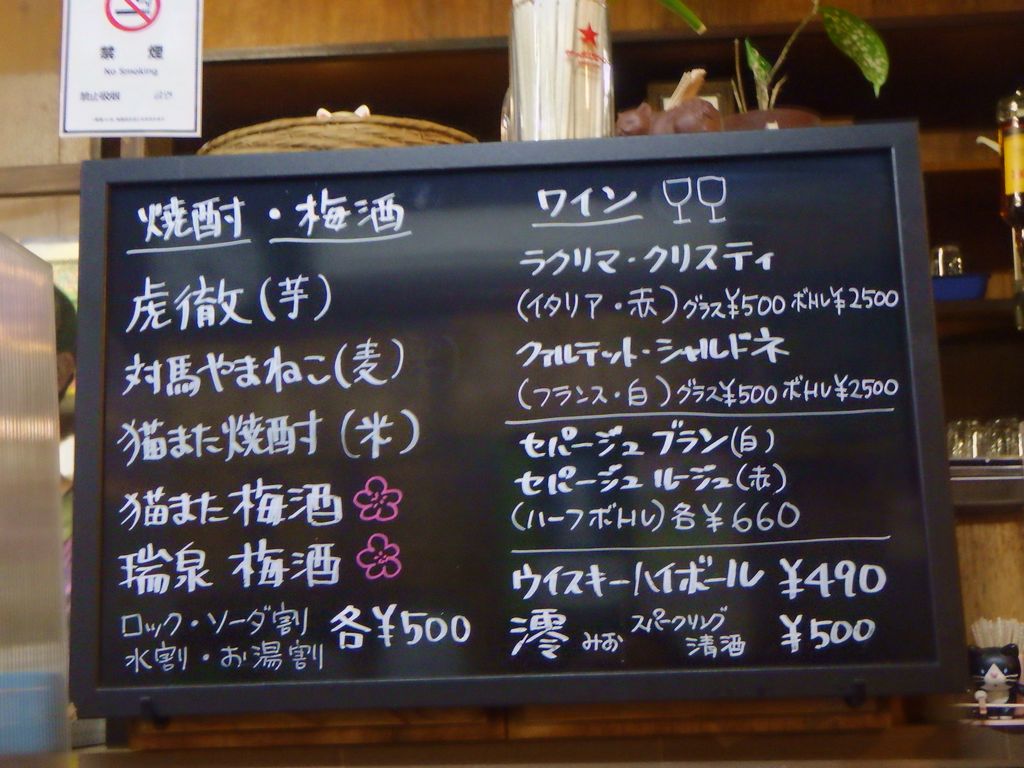 禁 煙
No Smoking
禁止吸烟
焼酎・梅酒
虎徹(芋)
対馬やまねこ(麦)
猫また焼酎(米)
猫また梅酒
瑞泉 梅酒
ロック・ソーダ割
水割・お湯割
各¥500
ワイン
ラクリマ・クリスティ
(イタリア・赤)グラス¥500 ボトル¥2500
クァルテット・シャルドネ
(フランス・白)グラス¥500 ボトル¥2500
セパージュ ブラン(白)
セパージュ ルージュ(赤)
(ハーフボトル)各¥660
ウイスキーハイボール ¥490
澪 みお スパークリング 清酒 ¥500